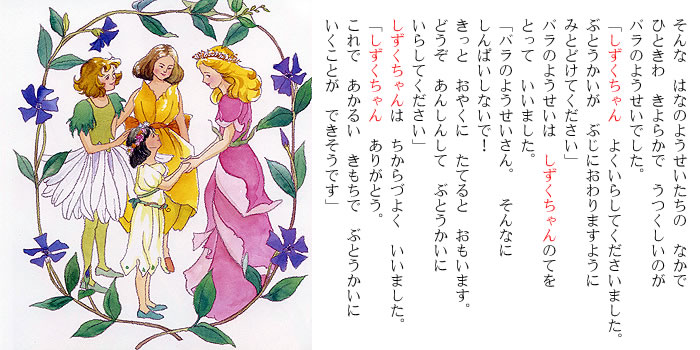 そんな　はなのようせいたちの　なかで
ひときわ　きよらかで　うつくしいのが
バラのようせいでした。
「しずくちゃん　よくいらしてくださいました。
ぶとうかいが　ぶじにおわりますように
みとどけてください」
バラのようせいは　しずくちゃんのてを
とって　いいました。
「バラのようせいさん。　そんなに
しんぱいしないで！
きっと　おやくに　たてると　おもいます。
どうぞ　あんしんして　ぶとうかいに
いらしてください」
しずくちゃんは　ちからづよく　いいました。
「しずくちゃん　ありがとう。
これで　あかるい　きもちで　ぶとうかいに
いくことが　できそうです」